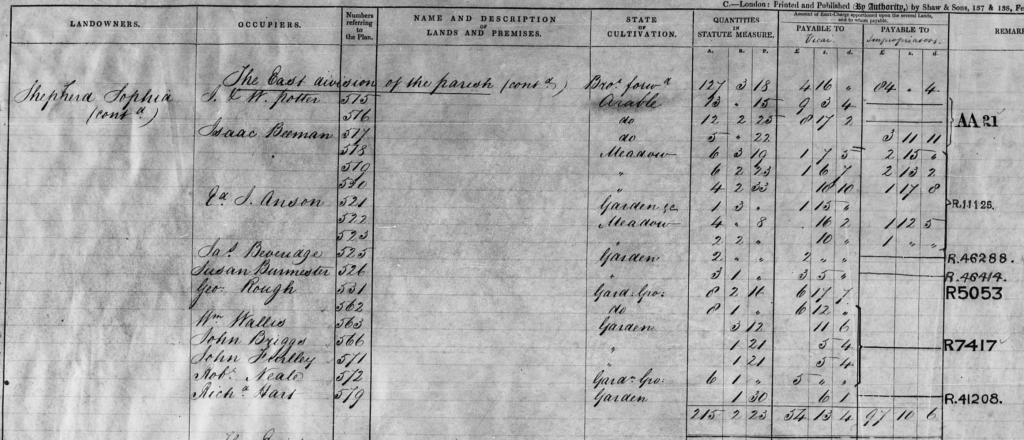 C.—London: Printed and Published (By Authority,) by Shaw & Sons, 137 & 138, Fe
LANDOWNERS. OCCUPIERS. Numbers referring to the Plan. NAME AND DESCRIPTION OF LANDS AND PREMISES. STATE OF CULTIVATION. QUANTITIES IN STATUTE MEASURE. Amount of Rent-Charge apportioned upon the several Lands, and to whom payable. PAYABLE TO Vicar. PAYABLE TO Impropriators. REMARK
A. R. P. £ s. d. £ s. d.
The East division of the parish (contd) Brot forwd 127 3 18 4 16 " 84 " 4
Shepherd Sophia J. & W. Potter 515 Arable 13 " 15 9 3 4
(contd) 516 do 12 2 25 8 17 2 AA 21
Isaac Beeman 517 do 5 " 22 3 11 11
518 Meadow 6 3 19 1 7 5 2 15 "
519 " 6 2 23 1 6 7 2 13 2
520 " 4 2 33 18 10 1 17 8
Ed J. Anson 521 Garden &c 1 3 " 1 15 " R.11125.
522 Meadow 4 " 8 16 2 1 12 5
523 " 2 2 " 10 " 1 " "
Jas Beveridge 525 Garden 2 " " 2 " " R.46288.
Susan Burmester 526 " 3 1 " 3 5 " R.46414.
Geo Rough 531 Gard: Gro: 8 2 11 6 17 7 R5053
562 do 8 1 " 6 12 "
Wm Wallis 563 Garden 3 12 11 6
John Briggs 566 " 1 21 5 4 R7417
John 571 " 1 21 5 4
Robt Neale 572 Gardn Gro: 6 1 " 5 " "
Richd Hart 579 Garden 1 30 6 1 R.41208.
215 2 23 54 13 4 97 10 6